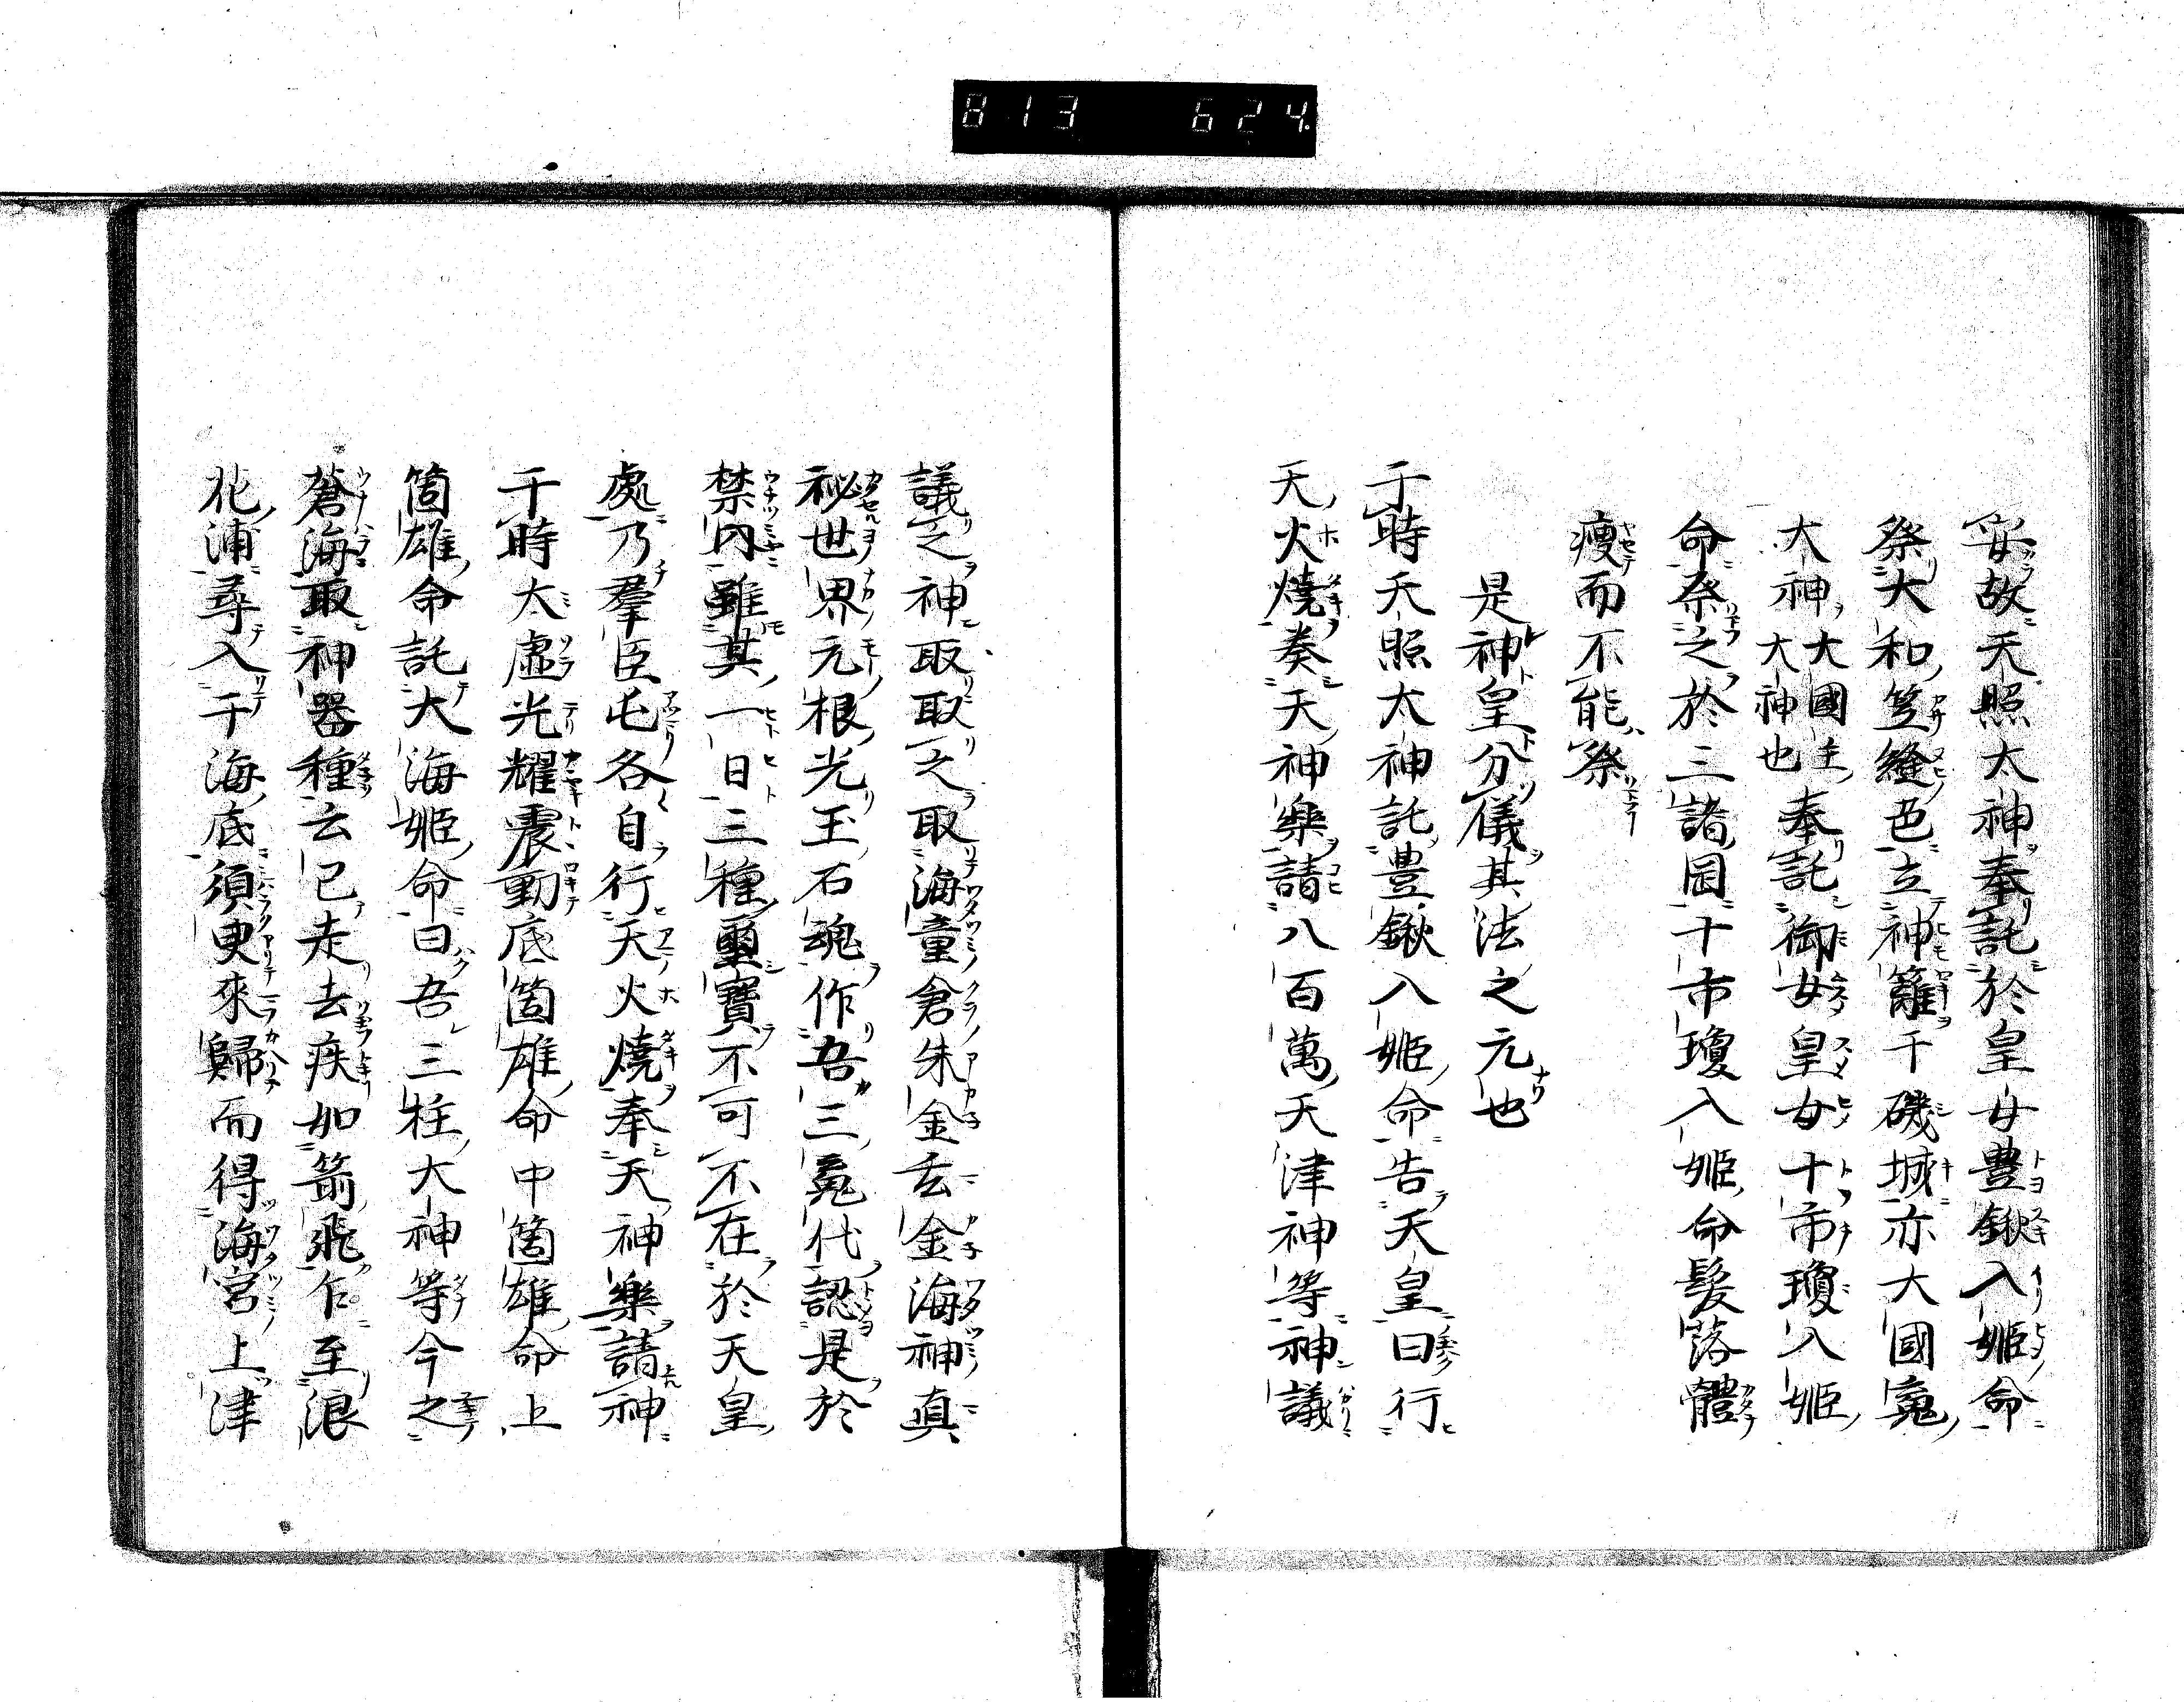 813 624
安故天照太神奉託於皇女豊鍬入姫命
祭大和笠縫邑立神籬于磯城亦大國䰟
大神大國主大神也奉託御女皇女十市瓊入姫
命祭之於三諸岡十市瓊入姫命髪落體
瘦而不能祭
是神皇分儀其法之元也
于時天照太神託豊鍬入姫命告天皇曰行
天火燒奏天神樂請八百萬天津神等神議
議之神取取之取海童倉朱金丟金海神真
祕世界元根光玉石魂作吾三䰟代認是於
禁内雖其一日三種璽寶不可不在於天皇
處乃羣臣屯各自行天火燒奉天神樂請神
于時太虛光耀震動底箇雄命中箇雄命上
箇雄命託大海姫命曰吾三柱大神等今之
蒼海取神器種云已走去疾如箭飛乍至浪
花浦尋入于海底須臾來歸而得海宮上津